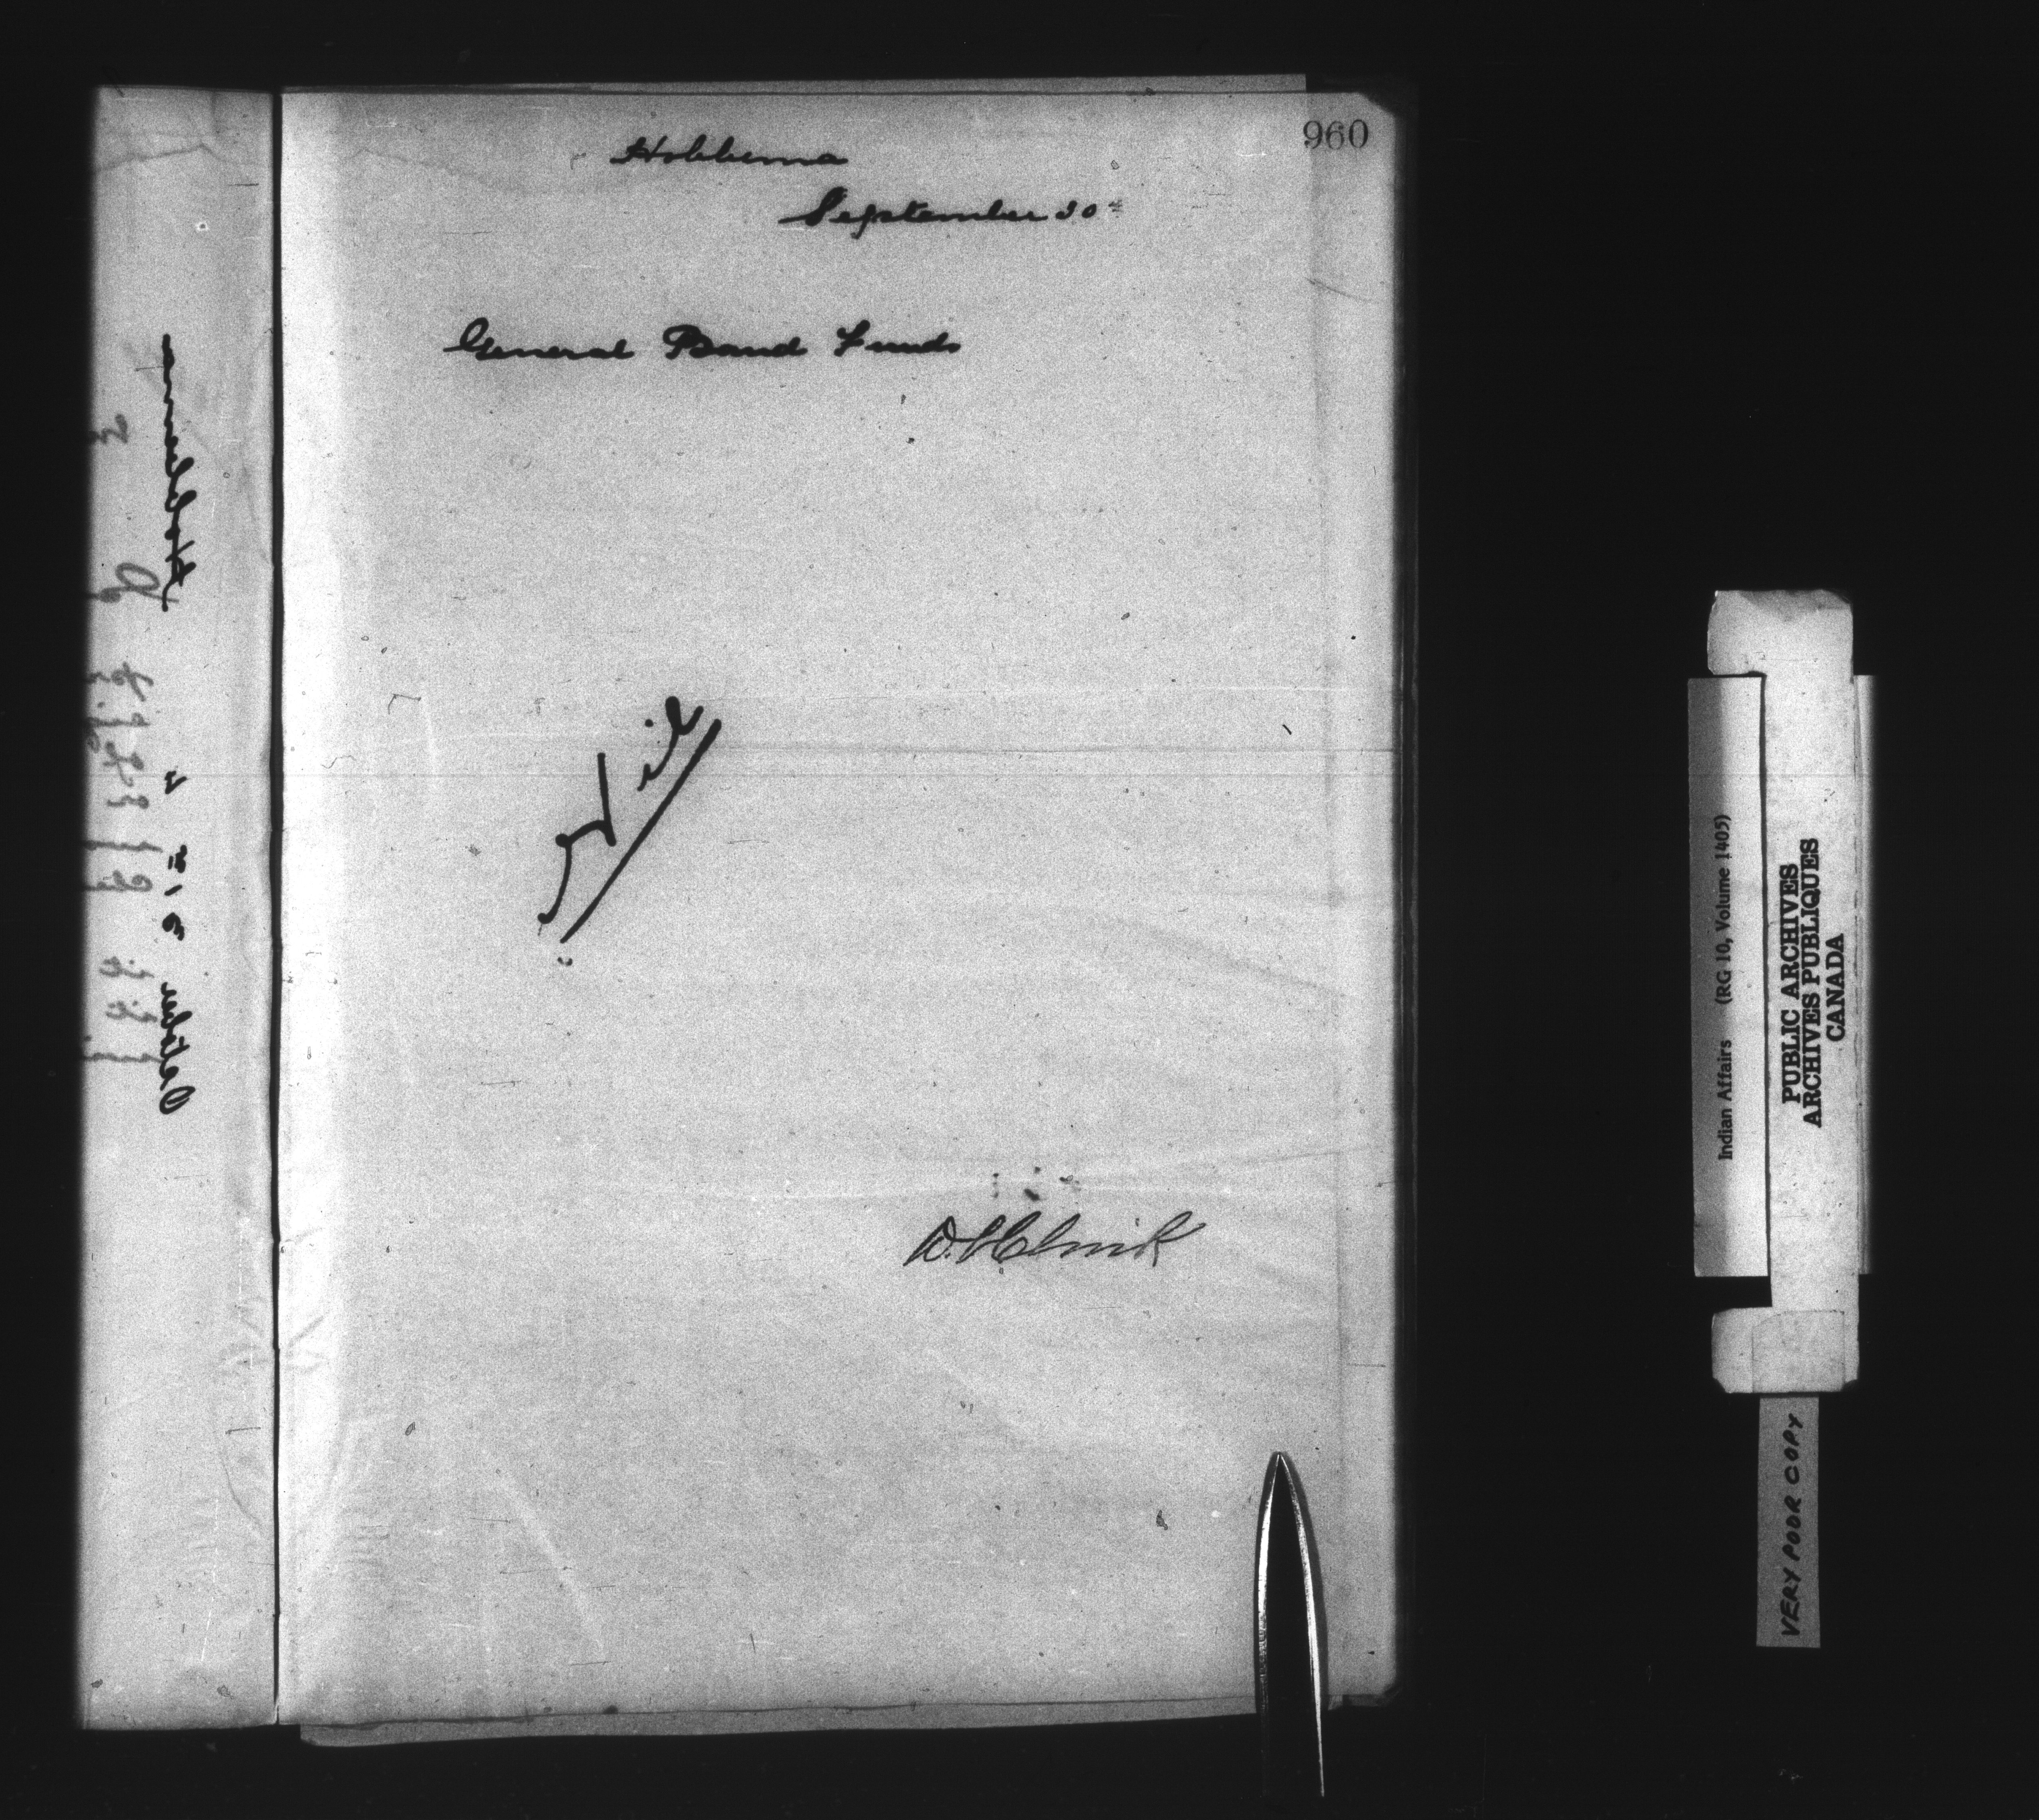 960
Hobbema
September 30th
General Band Funds
Nil
Hobbema
October
Indian Affairs (RG 10, Volume 1405)
PUBLIC ARCHIVES
ARCHIVES PUBLIQUES
CANADA
VERY POOR COPY